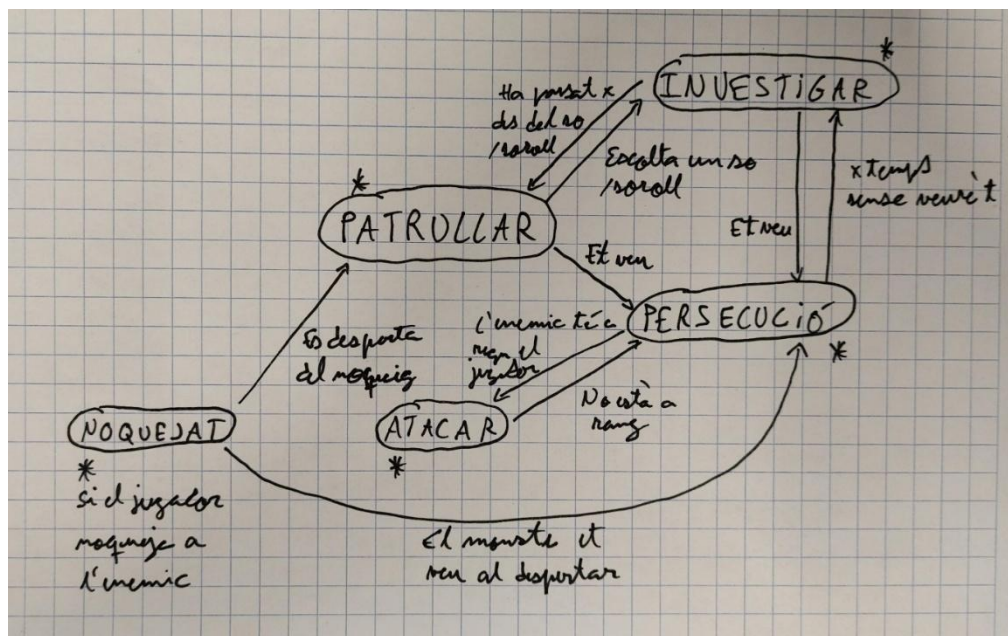 *
INVESTIGAR
Ha passat x
ds del so
/soroll
Escolta un so
/soroll
x temps
sense veure't
Et veu
*
PATRULLAR
Et veu
PERSECUCIÓ
*
L'enemic té a
rang el
jugador
No està a
rang
Es desperta
del noqueig
NOQUEJAT
*
Si el jugador
noqueja a
l'enemic
ATACAR
*
El monstre et
veu al despertar